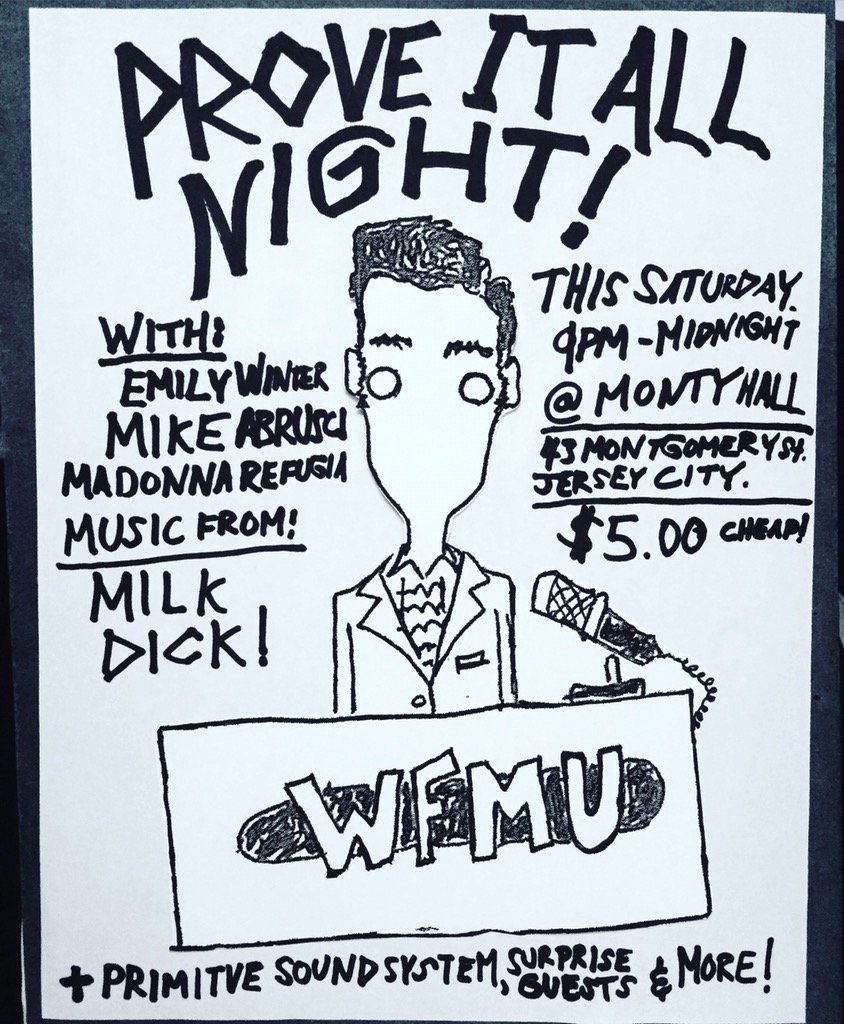 PROVE IT ALL
NIGHT!
WITH:
EMILY WINTER
MIKE ABRUSCI
MADONNA REFUGIA
MUSIC FROM!
MILK
DICK!
THIS SATURDAY.
9PM - MIDNIGHT
@ MONTY HALL
43 MONTGOMERY St.
JERSEY CITY.
$5.00 CHEAP!
WFMU
+ PRIMITVE SOUNDSYSTEM, SURPRISE GUESTS & MORE!